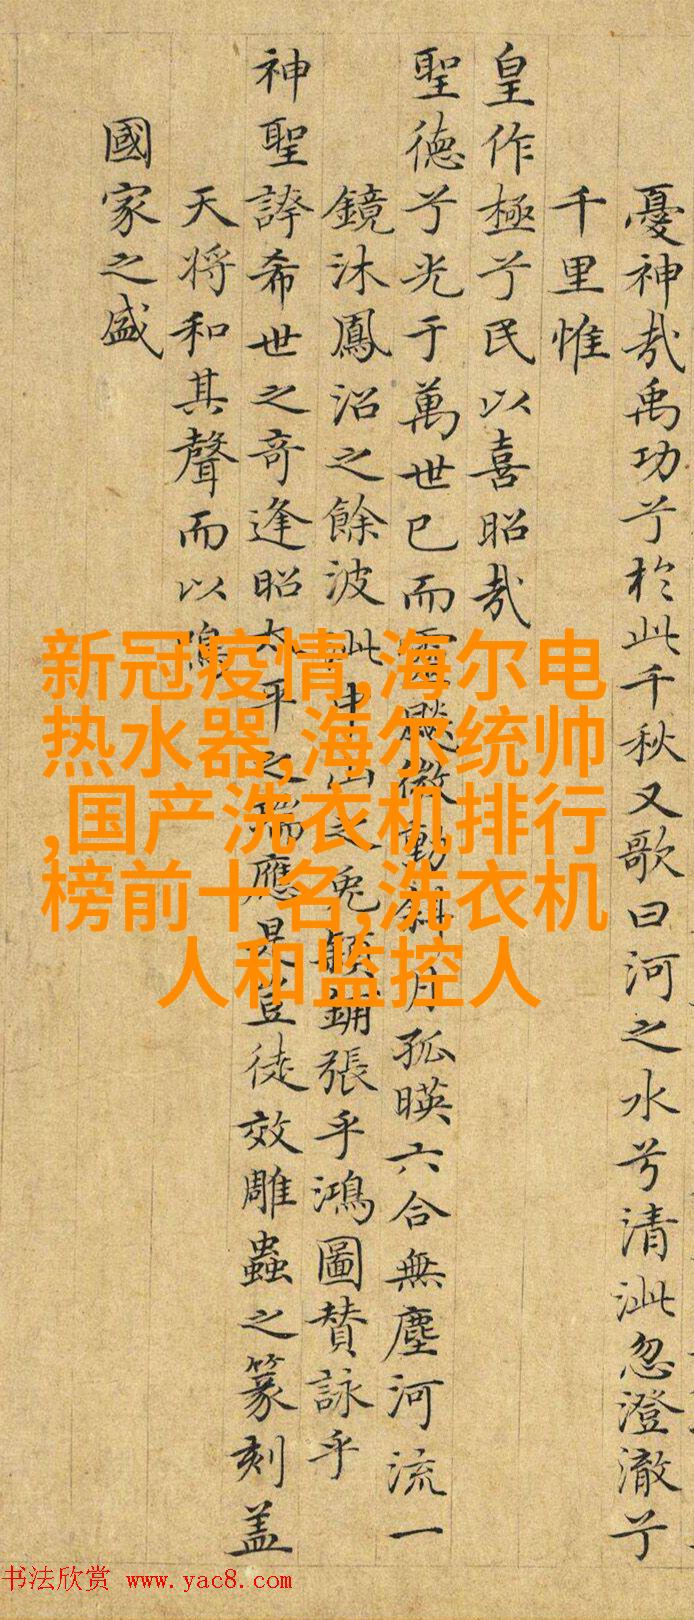 憂神哉禹功兮於此千秋又歌曰河之水兮清泚忽澄澈兮
千里惟
皇作極兮民以喜昭哉
聖德兮光于萬世已而靈飈微動斜月孤暎六合無塵河流一
鏡沐鳳沼之餘波 中山之兔穎鋪張乎鴻圖賛詠乎
神聖誇希世之奇逢昭太平之瑞應是豈徒效雕蟲之篆刻盖
天将和其聲而以鳴
國家之盛
新冠疫情,海尔电
热水器,海尔统帅
,国产洗衣机排行
榜前十名,洗衣机
人和监控人
书法欣赏 www.yac8.com